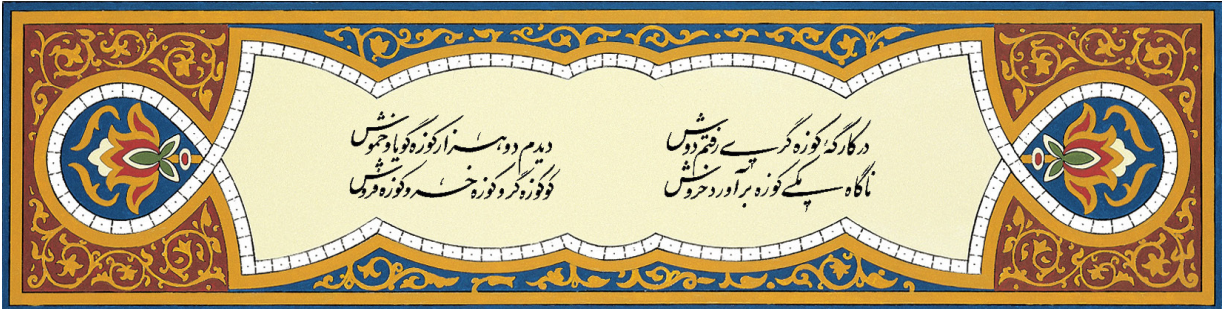 در کارگه کوزه گری رفتم دوش دیدم دو هزار کوزه گویا و خموش
ناگاه یکی کوزه برآورد خروش کو کوزه گر و کوزه خر و کوزه فروش